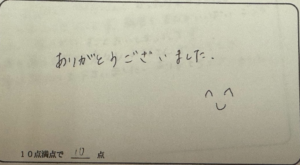 ありがとうございました.
10点満点で 10 点